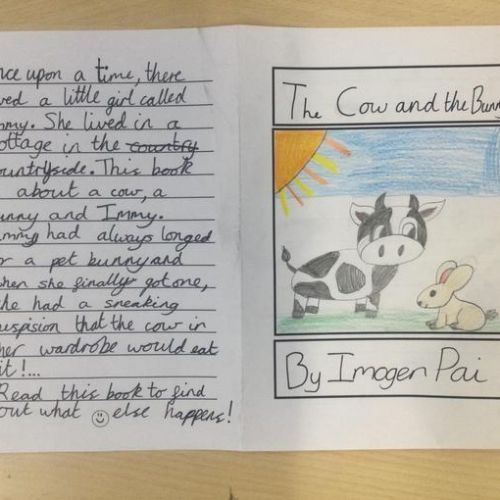 nce upon a time, there
ved a little girl called
mmy. She lived in a
ottage in the country
ountryside. This book
about a cow, a
unny and Immy.
mmy had always longed
or a pet bunny and
hen she finally got one,
she had a sneaking
uspision that the cow in
her wardrobe would eat
it!...
Read this book to find
out what ☺ else happens!
The Cow and the Bunny
By Imogen Pai